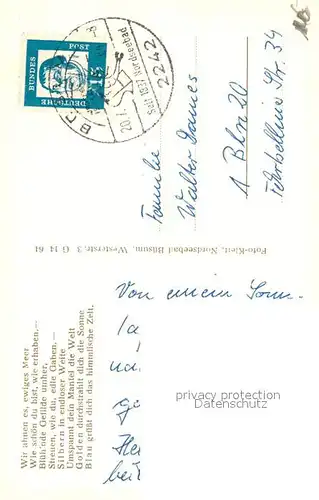 DEUTSCHE
BUNDES
POST
15
20.7.
Seit 1837 Nordseebad
2242
Familie
Walter Dames
1 Bln 20
Fehrbelliner Str. 34
Foto-Klett, Nordseebad Büsum, Westerstr. 3 G 14 64
Von einem Sonn-
Wir ahnen es, ewiges Meer
Wie schön du bist, wie erhaben, —
Blüh'nde Gefilde umher,
Streuen, wie du, edle Gaben. —
Silbern in endloser Weite
Umspannt dein Mantel die Welt
Golden durchstrahlt dich die Sonne
Blau grüßt dich das himmlische Zelt.
privacy protection
Datenschutz